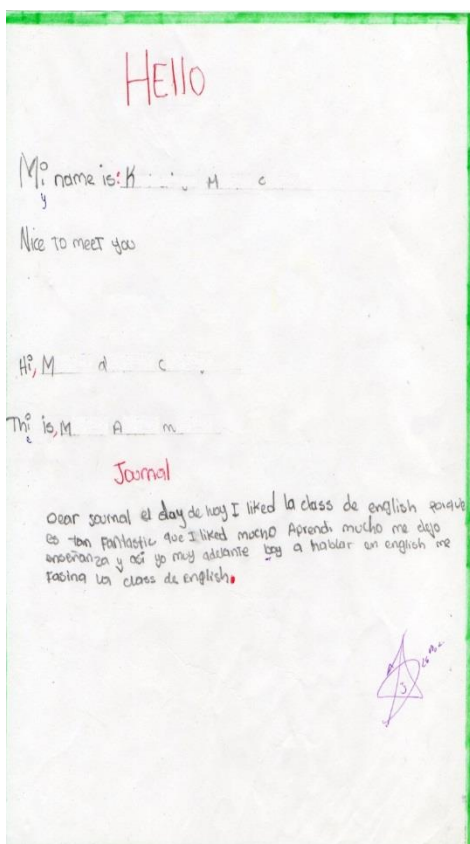 HEllO
Mi name is: K M c
y
Nice TO meeT you
Hi, M d C .
Thi is, M A m
e
Journal
Dear journal el day de hoy I liked la class de english porque
es tan fantastic que I liked mucho Aprendi mucho me dejo
enseñanza y asi yo muy adelante boy a hablar en english me
facina la class de english.
J